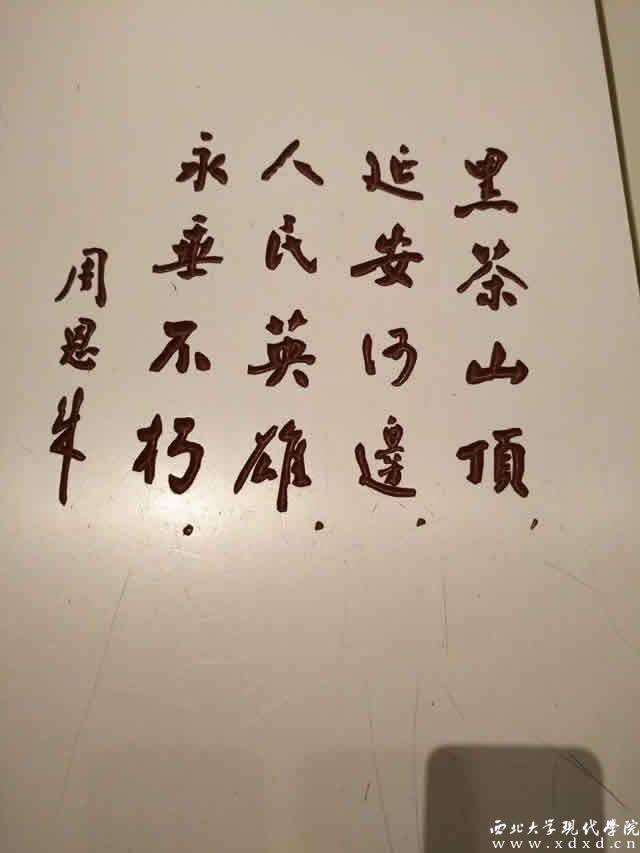 黑茶山頂，
延安河邊，
人民英雄，
永垂不朽。
周恩来
西北大学现代学院
www.xdxd.cn